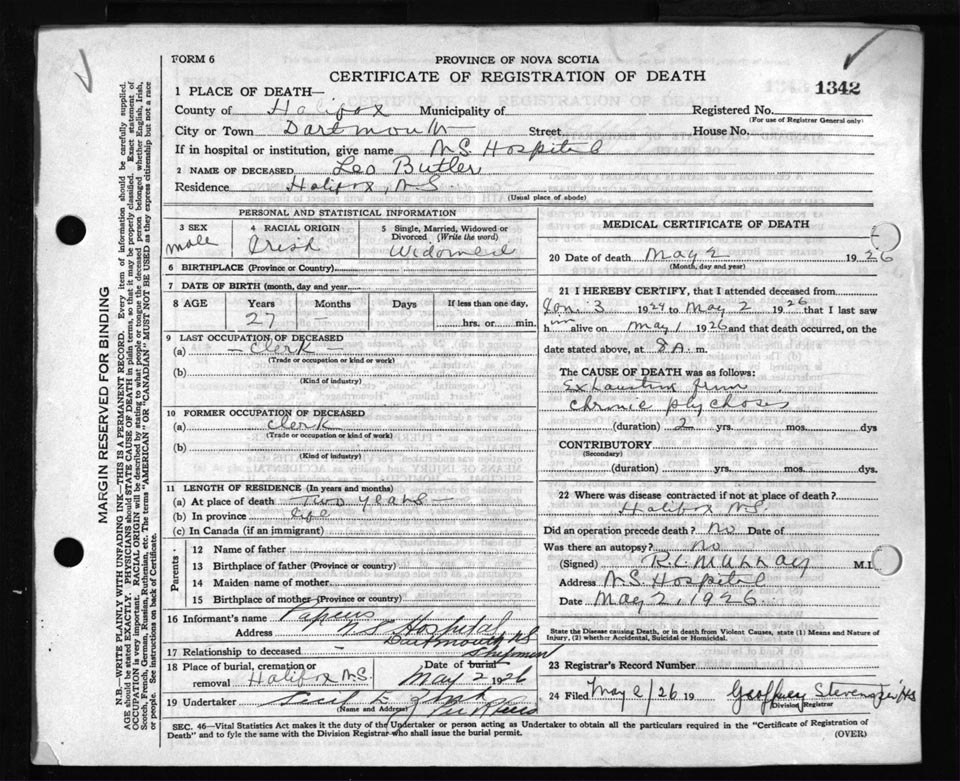 FORM 6
PROVINCE OF NOVA SCOTIA
CERTIFICATE OF REGISTRATION OF DEATH
1342
1 PLACE OF DEATH—
County of Halifax Municipality of Registered No.
(For use of Registrar General only)
City or Town Dartmouth Street House No.
If in hospital or institution, give name N.S. Hospital
2 NAME OF DECEASED Leo Butler
Residence Halifax, N.S
(Usual place of abode)
PERSONAL AND STATISTICAL INFORMATION
3 SEX
male
4 RACIAL ORIGIN
Irish
5 Single, Married, Widowed or Divorced (Write the word)
Widowed
6 BIRTHPLACE (Province or Country)
7 DATE OF BIRTH (month, day and year)
8 AGE Years Months Days If less than one day,
27 - hrs. or min.
9 LAST OCCUPATION OF DECEASED
(a) - Clerk -
(Trade or occupation or kind or work)
(b)
(Kind of industry)
10 FORMER OCCUPATION OF DECEASED
(a) Clerk
(Trade or occupation or kind of work)
(b)
(Kind of industry)
11 LENGTH OF RESIDENCE (In years and months)
(a) At place of death Two years
(b) In province Life
(c) In Canada (if an immigrant)
Parents
12 Name of father
13 Birthplace of father (Province or country)
14 Maiden name of mother
15 Birthplace of mother (Province or country)
16 Informant's name Papers
Address N S Hospital
Dartmouth NS
17 Relationship to deceased -
18 Place of burial, cremation or removal Halifax N.S.
Date of burial Shipment
May 2 1926
19 Undertaker
(Name and Address)
MEDICAL CERTIFICATE OF DEATH
20 Date of death May 2 1926
(Month, day and year)
21 I HEREBY CERTIFY, that I attended deceased from
Jan. 3 1924 to May 2 1926 that I last saw
him alive on May 1 1926 and that death occurred, on the
date stated above, at 8 A. m.
The CAUSE OF DEATH was as follows:
Exhaustion from
Chronic psychosis
(duration) 2 yrs. mos. dys
CONTRIBUTORY
(Secondary)
(duration) yrs. mos. dys.
22 Where was disease contracted if not at place of death?
Halifax N.S.
Did an operation precede death? No Date of
Was there an autopsy? No
(Signed) M.D.
Address N.S. Hospital
Date May 2, 1926
State the Disease causing Death, or in death from Violent Causes, state (1) Means and Nature of Injury, (2) whether Accidental, Suicidal or Homicidal.
23 Registrar's Record Number
24 Filed May 2/26 19 Geoffrey
Division Registrar
SEC. 46—Vital Statistics Act makes it the duty of the Undertaker or person acting as Undertaker to obtain all the particulars required in the "Certificate of Registration of
Death" and to fyle the same with the Division Registrar who shall issue the burial permit.
(OVER)
MARGIN RESERVED FOR BINDING
N.B.—WRITE PLAINLY WITH UNFADING INK—THIS IS A PERMANENT RECORD. Every item of information should be carefully supplied.
AGE should be stated EXACTLY. PHYSICIANS should STATE CAUSE OF DEATH in plain terms, so that it may be properly classified. Exact statement of
OCCUPATION is very important. RACIAL ORIGIN will be described by stating to what people or tongue the deceased person belonged whether English, Irish,
Scotch, French, German, Russian, Ruthenian, etc. The terms "AMERICAN" OR "CANADIAN" MUST NOT BE USED as they express citizenship but not a race
or people. See instructions on back of Certificate.